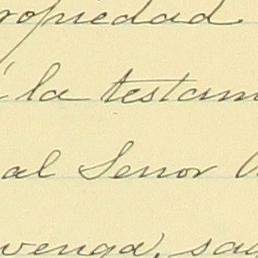 ropiedad
á la testam
al Senor
venga, sa